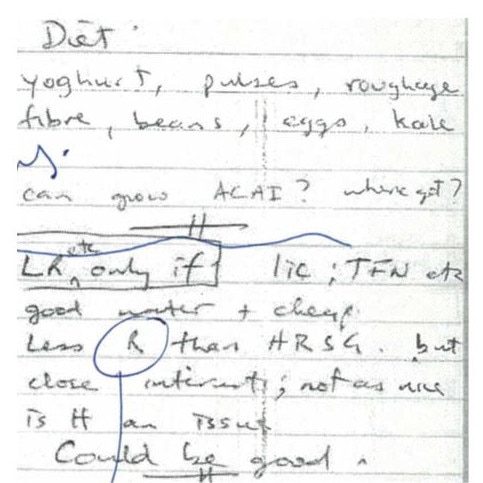 Diet
yoghurt, pulses, roughage
fibre, beans, eggs, kale
can grow ACAI? where get?
etc
LR, only if lic ; TFN etc
good water + cheap
Less R than HRSG. but
close ; not as nice
is H an issue
Could be good